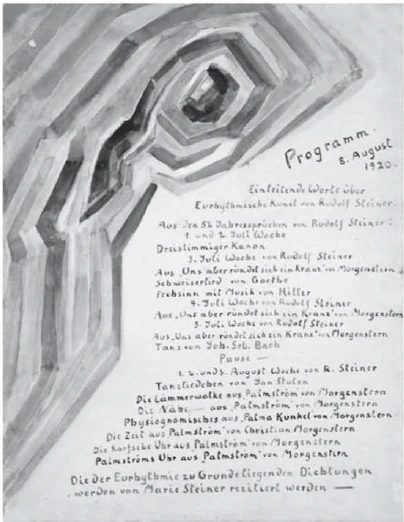 Programm.
8. August
1920.
Einleitende Worte über
Eurhythmische Kunst von Rudolf Steiner.
Aus den 52 Jahressprüchen von Rudolf Steiner:
1. und 2. Juli Woche
Dreistimmiger Kanon
3. Juli Woche von Rudolf Steiner
Aus „Uns aber ründet sich ein Kranz" von Morgenstern
Schweizerlied von Goethe
Frohsinn mit Musik von Hiller
4. Juli Woche von Rudolf Steiner
Aus „Uns aber ründet sich ein Kranz" von Morgenstern
5. Juli Woche von Rudolf Steiner
Aus „Uns aber ründet sich ein Kranz" von Morgenstern
Tanz von Joh. Seb. Bach
Pause —
1. 2. und 3. August Woche von R. Steiner
Tanzliedchen von Jan Stuten
Die Lämmerwolke aus „Palmström" von Morgenstern
Die Nähe — aus „Palmström" von Morgenstern
Physiognomisches aus „Palma Kunkel" von Morgenstern
Die Zeit aus „Palmström" von Christian Morgenstern
Die Korfsche Uhr aus „Palmström" von Morgenstern
Palmströms Uhr aus „Palmström" von Morgenstern
Die der Eurhythmie zu Grunde liegenden Dichtungen
werden von Marie Steiner rezitiert werden —